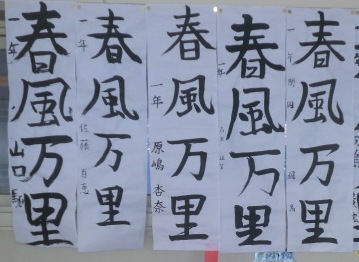 春風万里
一年
山口
春風万里
一年
佐藤 百恵
春風万里
一年
原嶋 杏奈
春風万里
一年
春風万里
一年